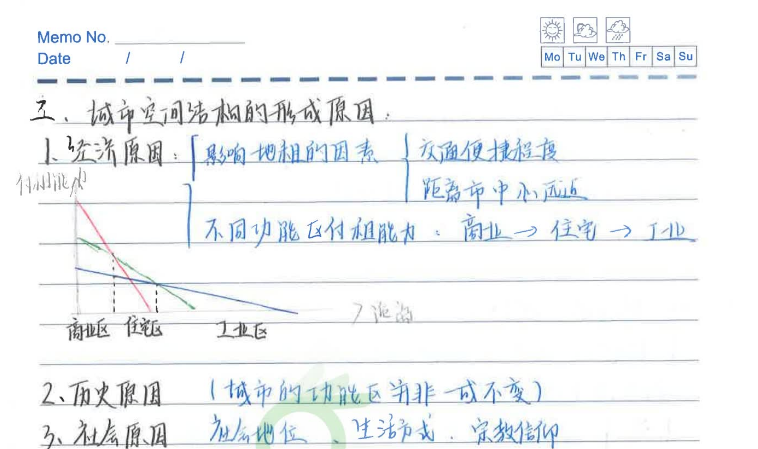 Memo No.
Date / /
Mo Tu We Th Fr Sa Su
三、城市空间结构的形成原因：
1、经济原因：影响地租的因素 交通便捷程度
距离市中心远近
付租能力
不同功能区付租能力：商业→住宅→工业
距离
商业区 住宅区 工业区
2、历史原因 （城市的功能区并非一成不变）
3、社会原因 社会地位、生活方式、宗教信仰